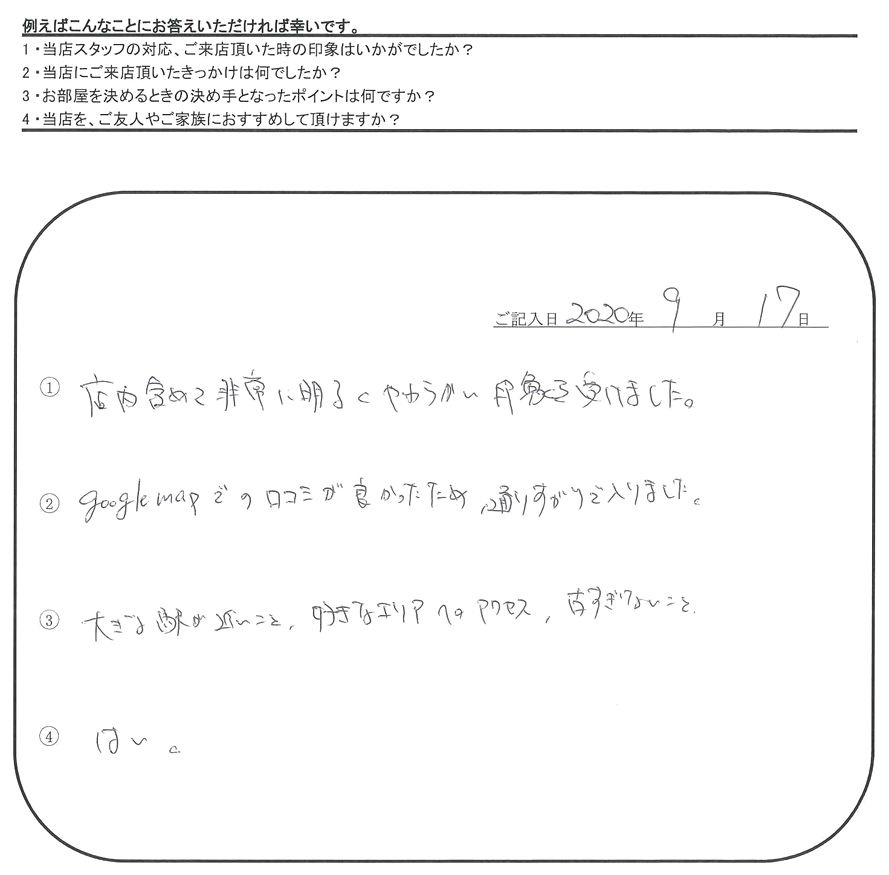 例えばこんなことにお答えいただければ幸いです。
1・当店スタッフの対応、ご来店頂いた時の印象はいかがでしたか？
2・当店にご来店頂いたきっかけは何でしたか？
3・お部屋を決めるときの決め手となったポイントは何ですか？
4・当店を、ご友人やご家族におすすめして頂けますか？
ご記入日 2020年 9月 17日
① 店内含めて非常に明るくやわらかい印象を受けました。
② googlemapでの口コミが良かったため、通りすがりで入りました。
③ 大きな駅が近いこと、好きなエリアへのアクセス、古すぎないこと.
④ はい。